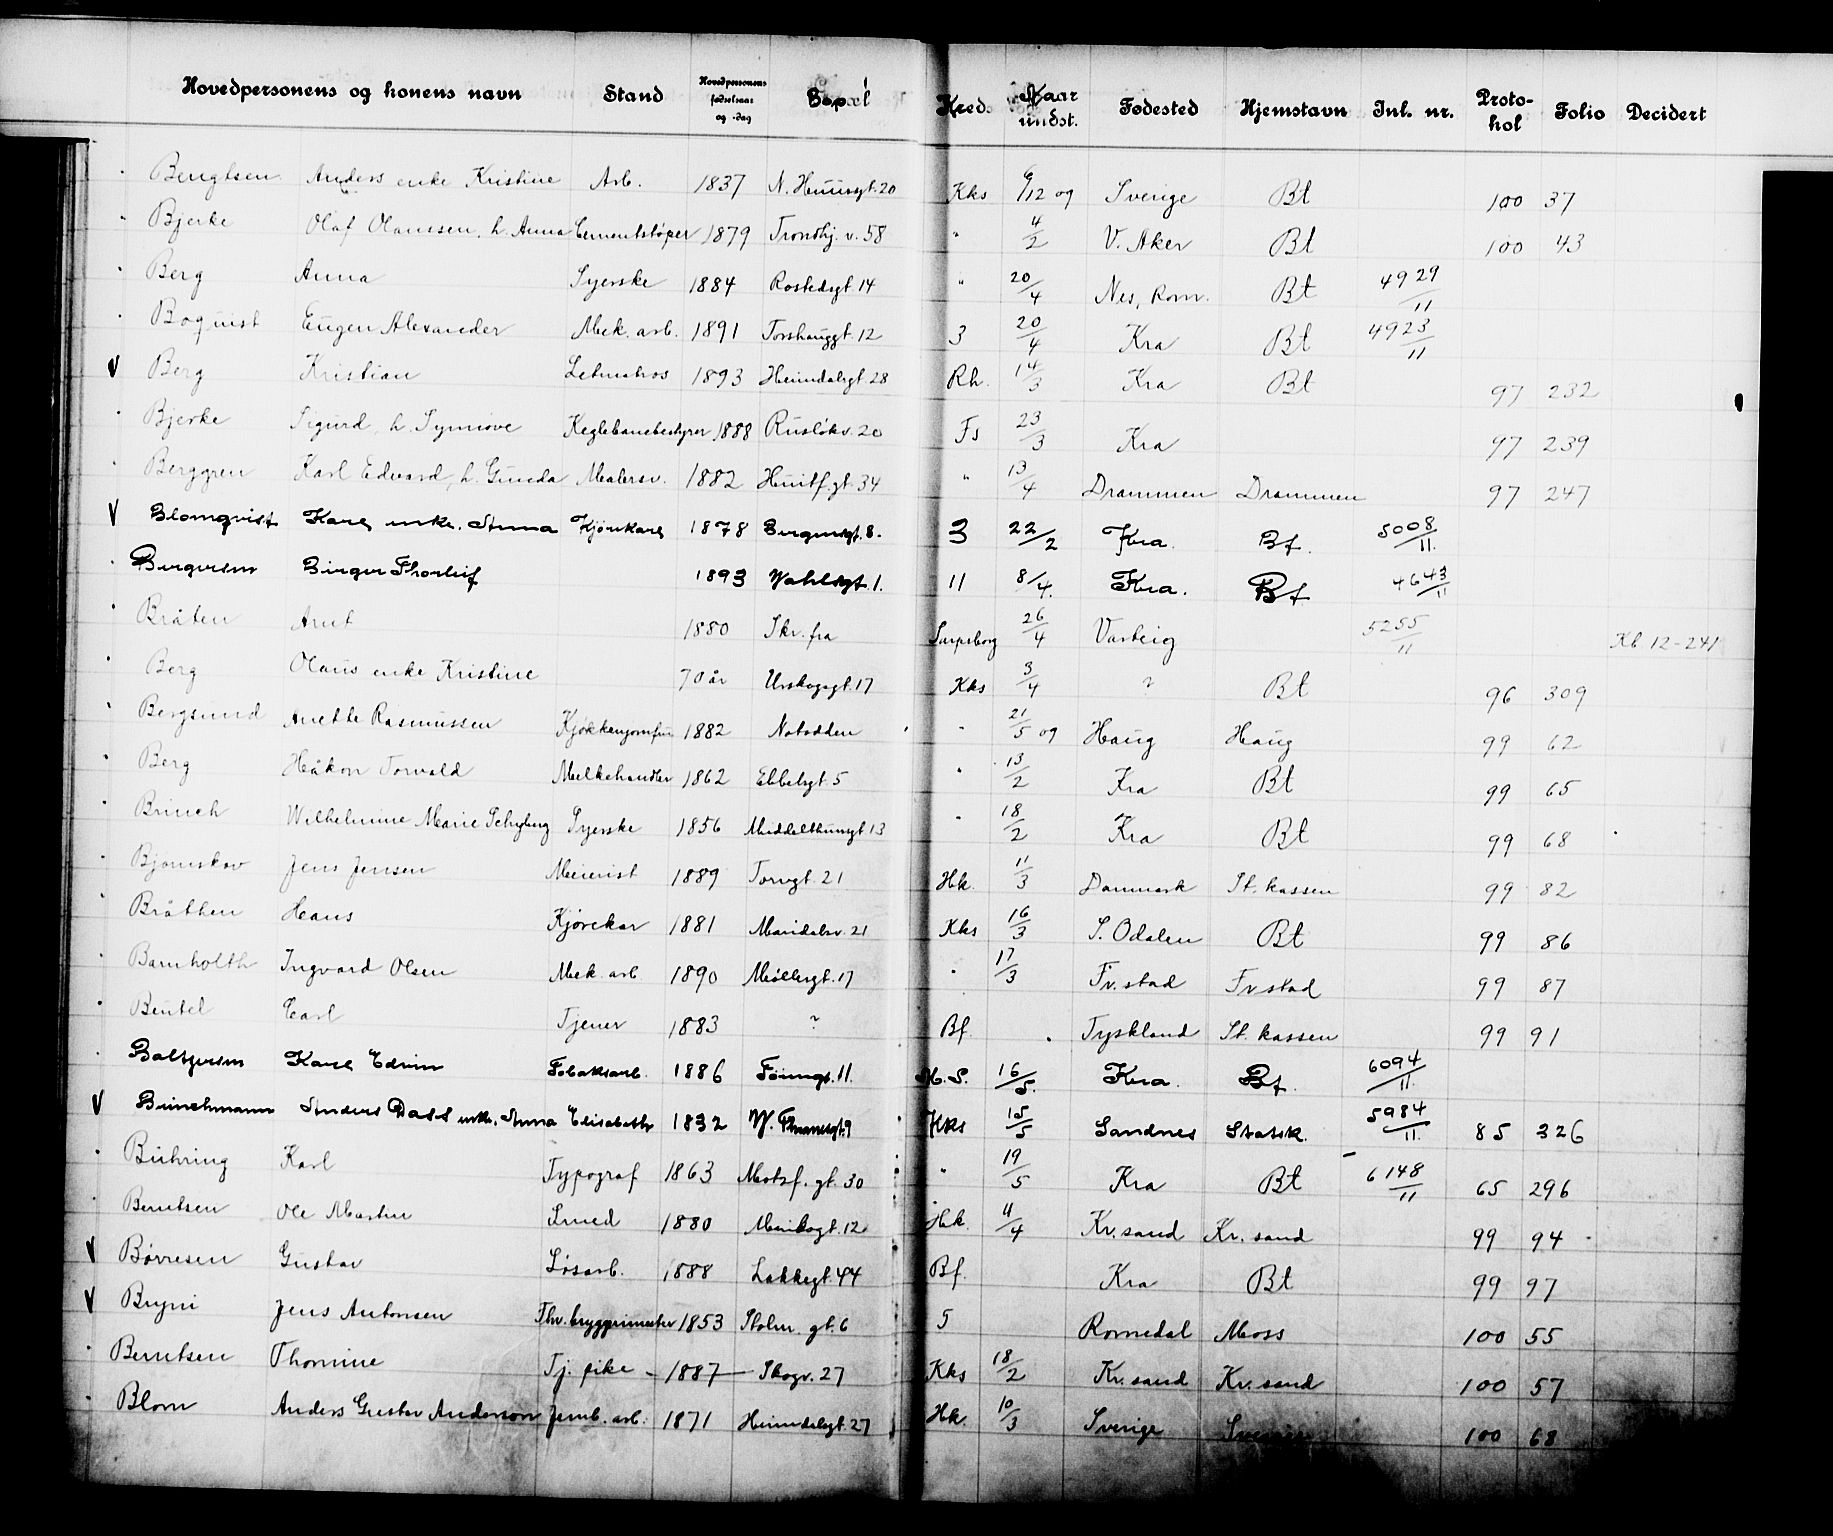 Hovedpersonens og konens navn Stand Hovedpersonens fødselsaar og -dag Bopæl Kreds Naar undst. Fødested Hjemstavn Inl. nr. Protokol Folio Decidert
Bengtsen Anders enke Kristine Arb. 1837 N. Huusgt. 20 Kks 6/12 og Sverige Bt 100 37
Bjerke Olaf Olaussen, h. Anna Cementstøper 1879 Trondhj. v. 58 " 4/2 V. Aker Bt 100 43
Berg Anna Syerske 1884 Rostedsgt 14 " 20/4 Nes, Rom. Bt 4929/11
Boquist Eugen Alexander Mek. arb. 1891 Torshauggt. 12 3 20/4 Kra Bt 4923/11
V Berg Kristian Letmatros 1893 Heimdalsgt 28 Rh. 14/3 Kra Bt 97 232
Bjerke Sigurd, h. Synnøve Keglebanebestyrer 1888 Ruseløkv. 20 Fs 23/3 Kra 97 239
Berggren Karl Edvard, h. Gunda Malersv. 1882 Huitf. gt. 34 " 13/4 Drammen Drammen 97 247
V Blomqvist Karl, enke. Anna Kjørekarl 1878 Bergensgt. 8. 3 22/2 Kra. Bt. 5008/11.
Birgersen Birger Thorleif 1893 Wahlsgt. 1. 11 8/4. Kra. Bt 4643/11
Bråten Arnt 1880 Skr. fra Sarpsborg 26/4 Varteig 5255/11 Kl. 12-241
Berg Olaus enke Kristine 70 år Urskogsgt. 17 Kks 3/4 ? Bt 96 309
Bergsund Anette Rasmussen Kjøkkenjomfru 1882 Notodden " 21/5 og Haug Haug 99 62
Berg Håkon Torvald Melkehandler 1862 Ebbelsgt. 5 " 13/2 Kra Bt 99 65
Brinch Wilhelmine Marie Schyberg Syerske 1856 Middelthunsgt 13 " 18/2 Kra Bt 99 68
Bjornskov Jens Jensen Meierist 1889 Torvgt. 21 Hk. 11/3 Danmark St. kassen 99 82
Bråthen Hans Kjørekar 1881 Maridalsv. 21 Kks 16/3 S. Odalen Bt 99 86
Barnholth Ingvard Olsen Mek. arb 1890 Møllergt. 17 " 17/3 Fr. stad Fr. stad 99 87
Beutel Carl Tjener 1883 ? Bf. Tyskland St. kassen 99 91
Baltzersen Karl Edvin Tobaksarb. 1886 11. M. S. 16/5. Kra. Bt. 6094/11.
V Brinchmann Anders Dass enke. Anna Elisabeth 1832 W. Thranesgt. 9 Kks 15/5 Sandnes Statsk. 5984/11. 85 326
Bühring Karl Typograf 1863 Motzf. gt. 30 " 19/5 Kra Bt 6148/11 65 296
Berntsen Ole Martin Smed 1880 12 Hk. 11/4 Kr. sand Kr. sand 99 94
V Børresen Gustav Løsarb. 1888 Lakkegt. 44 Bf. Kra Bt 99 97
V Bryni Jens Antonsen Fhv. bryggerimester 1853 Sthlm. gt. 6 5 Romedal Moss 100 55
Berntsen Thomine Tj. pike 1887 Skogv. 27 Kks 18/2 Kr. sand Kr. sand 100 57
Blom Anders Gustav Anderson Jernb. arb. 1871 Heimdalsgt. 27 Hk. 10/3 Sverige Sverige 100 68